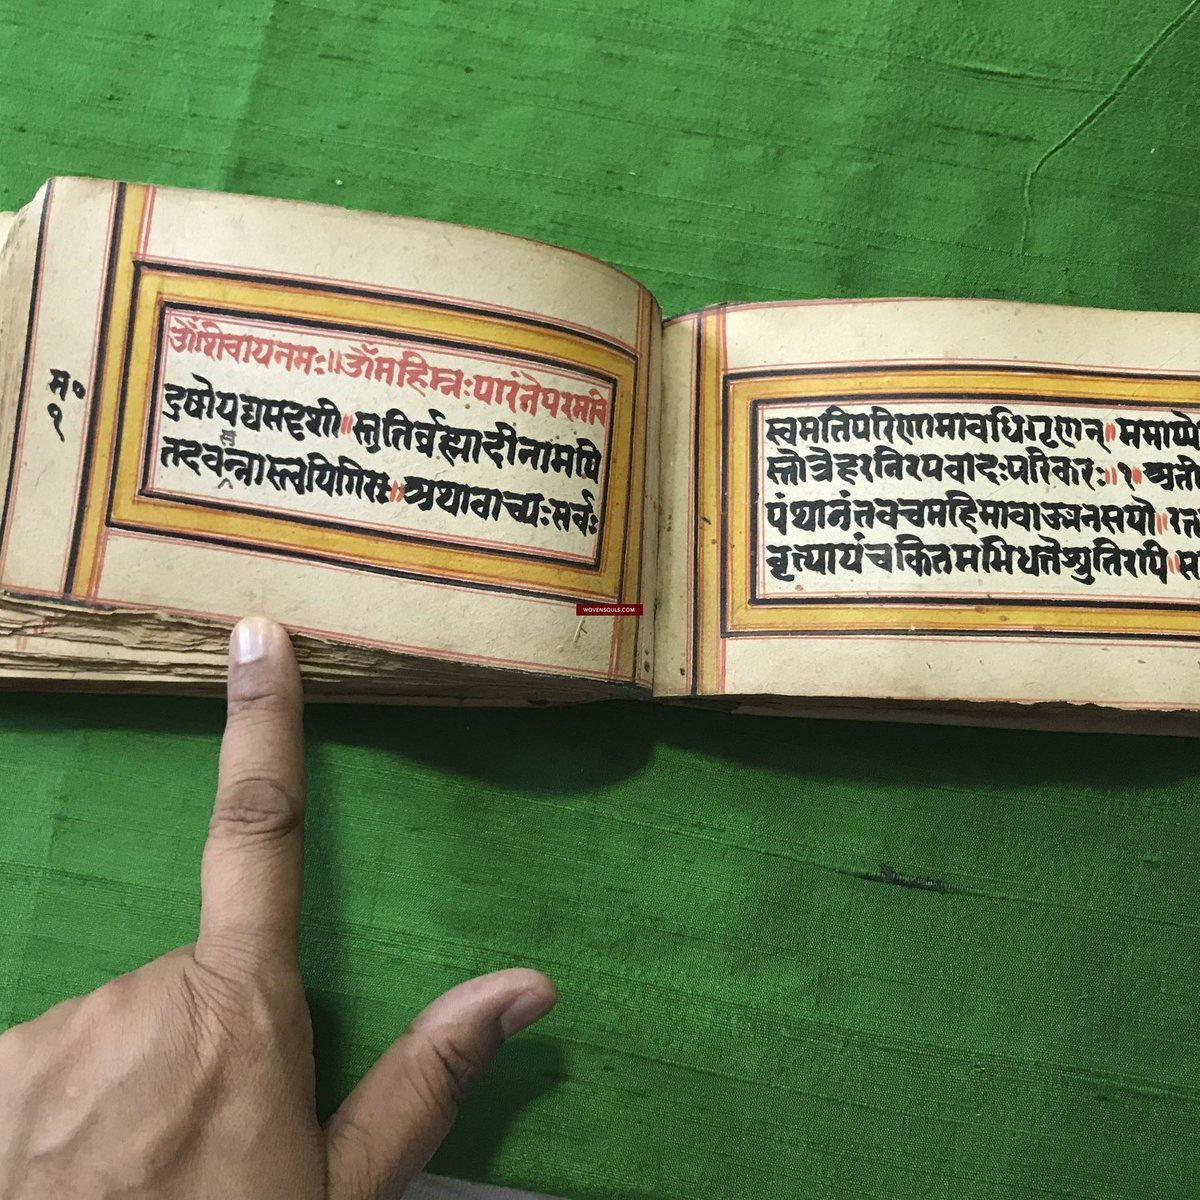 म०
१
ॐशिवायनमः॥ॐमहिम्नःपारंतेपरमवि
दुषोयद्यसदृशी॥स्तुतिर्ब्रह्मादीनामपि
तदवसन्नास्त्वयिगिरः॥अथावाच्यःसर्वः
स्वमतिपरिणामावधिगृणन्॥ममाप्ये
स्तोत्रेहरनिरपवादःपरिकरः॥१॥अती
पंथानंतवचमहिमावाङ्मनसयो॥रत
वृत्त्यायंचकितमभिधत्तेश्रुतिरपि॥स
WOVENSOULS.COM